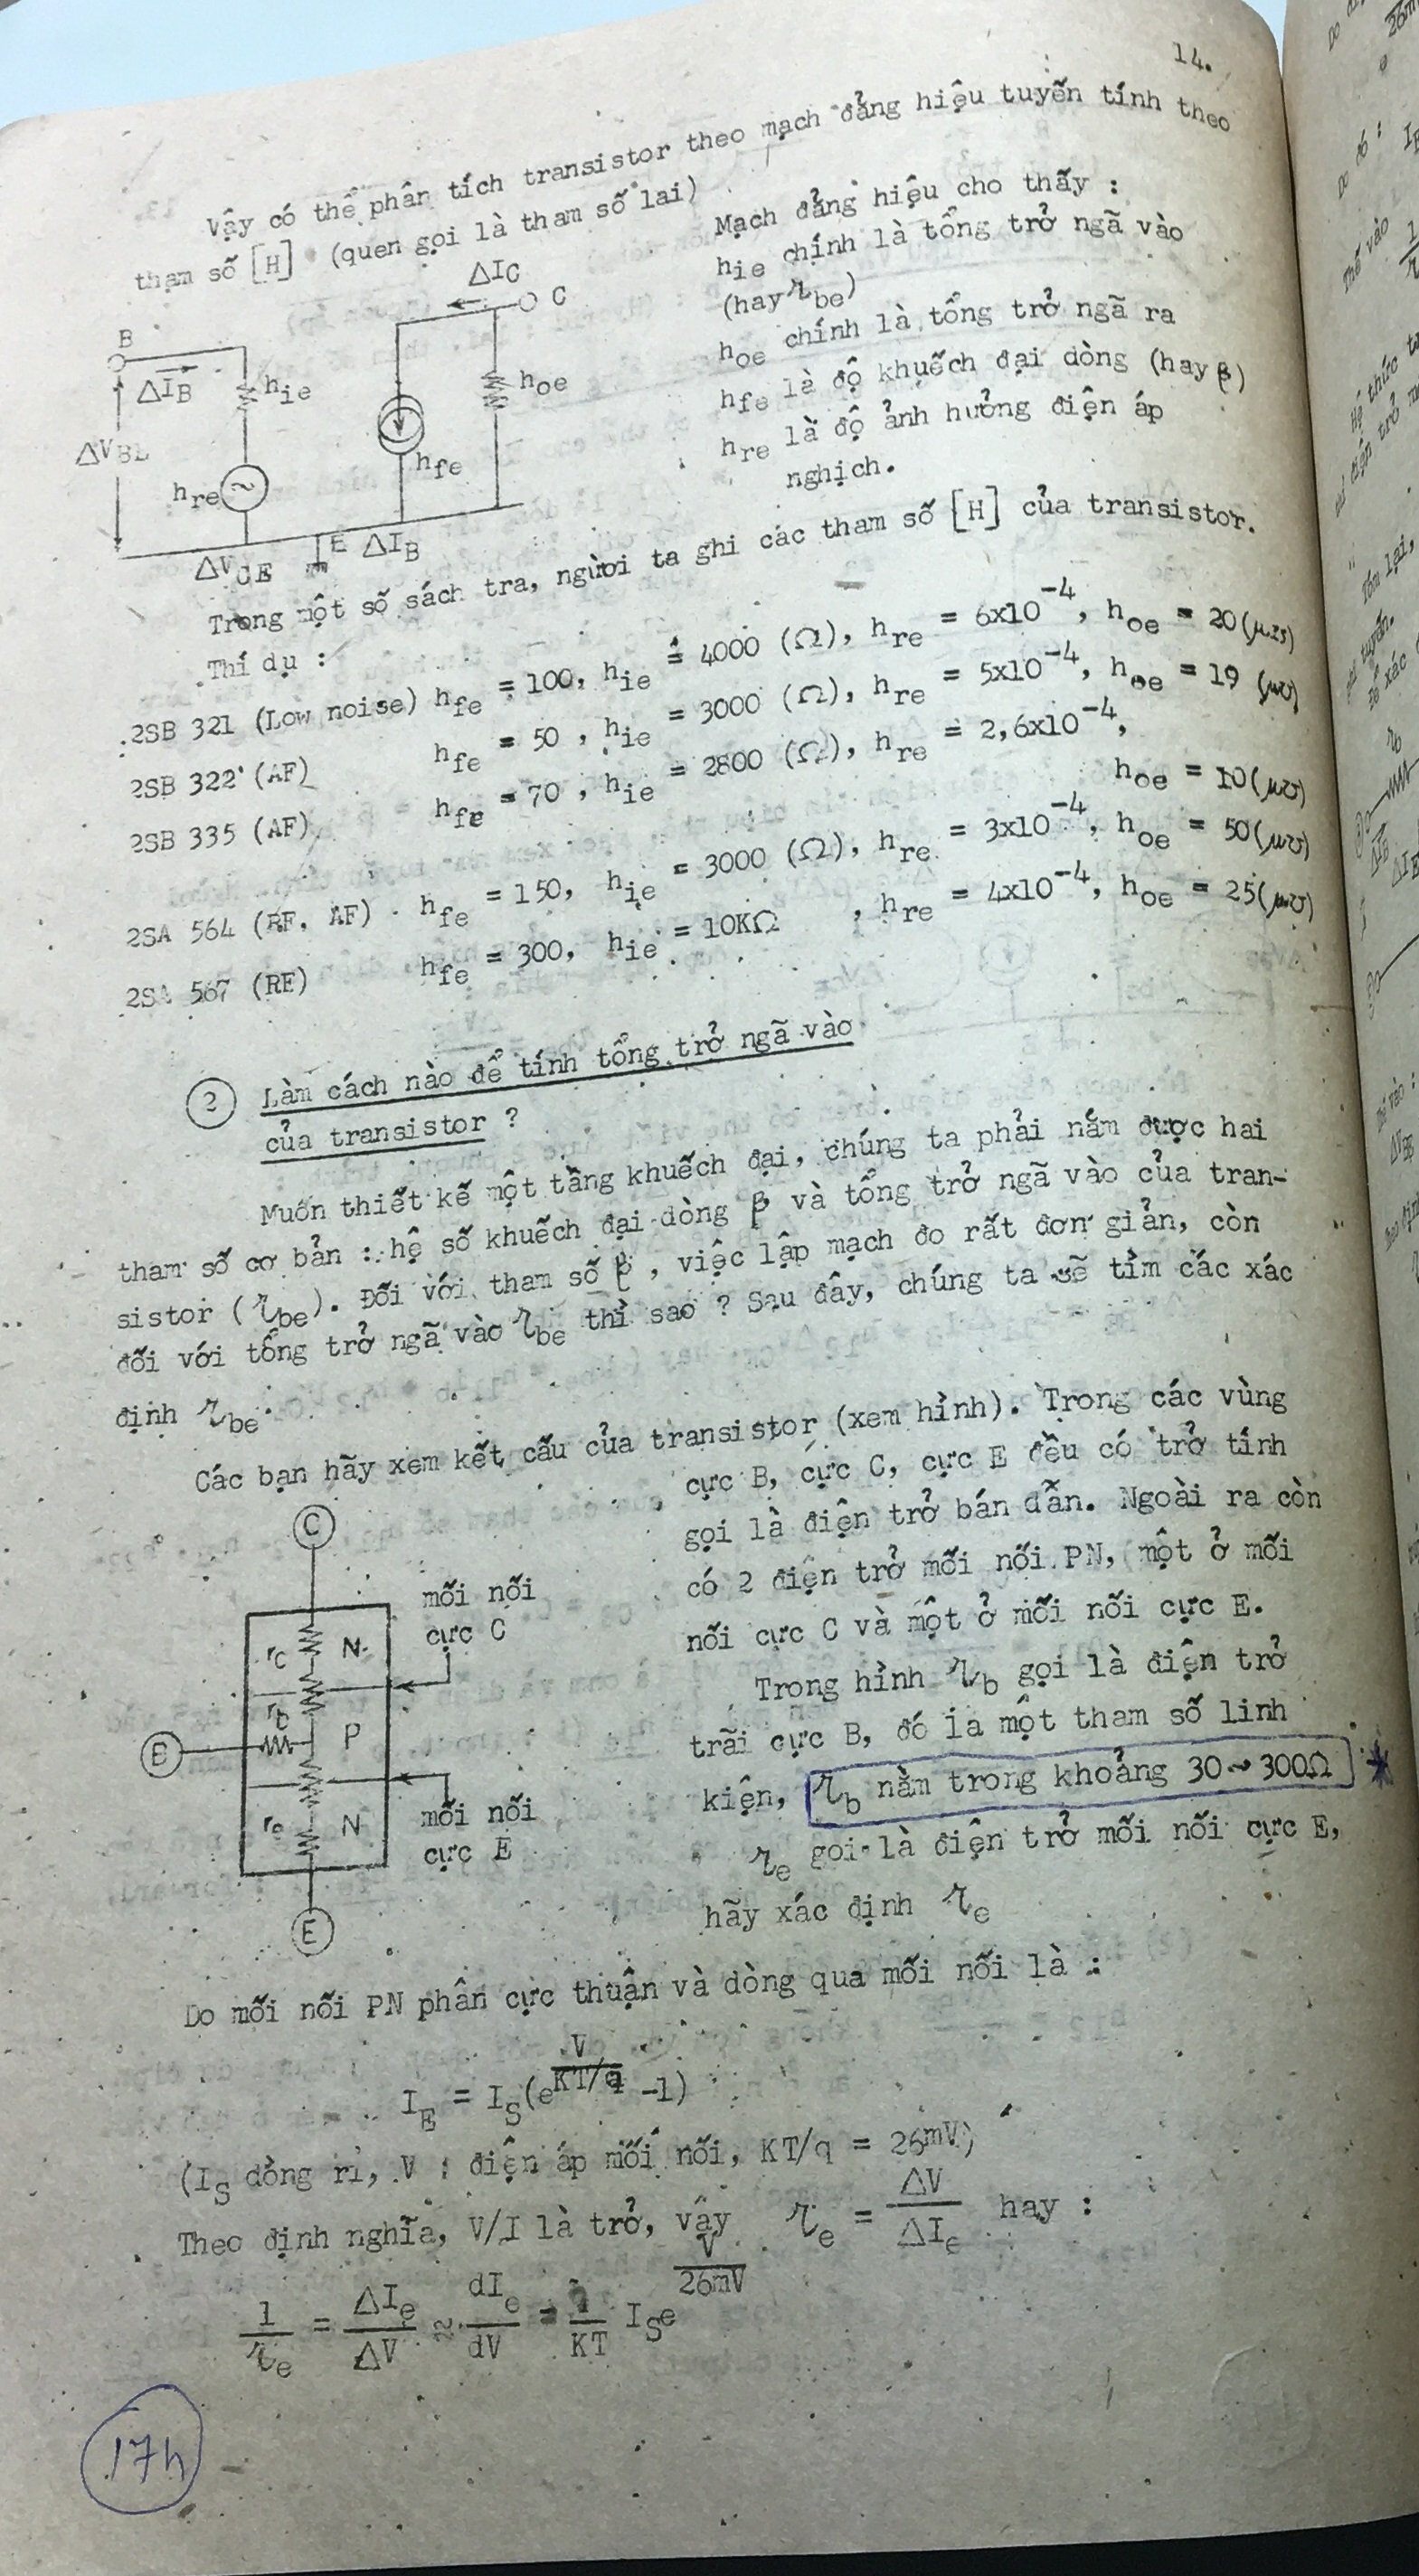 14.
Vậy có thể phân tích transistor theo mạch đẳng hiệu tuyến tính theo
tham số [H] (quen gọi là tham số lai)
Mạch đẳng hiệu cho thấy :
hie chính là tổng trở ngã vào
(hay rbe)
hoe chính là tổng trở ngã ra
hfe là độ khuếch đại dòng (hay β)
hre là độ ảnh hưởng điện áp
nghịch.
ΔIC
C
B
ΔIB
hie
hoe
ΔVBE
hre
hfe
ΔVCE
E
ΔIB
Trong một số sách tra, người ta ghi các tham số [H] của transistor.
Thí dụ :
2SB 321 (Low noise) hfe = 100, hie = 4000 (Ω), hre = 6x10⁻⁴, hoe = 20(μ℧)
2SB 322 (AF) hfe = 50 , hie = 3000 (Ω), hre = 5x10⁻⁴, hoe = 19 (μ℧)
2SB 335 (AF) hfe = 70 , hie = 2800 (Ω), hre = 2,6x10⁻⁴,
hoe = 10(μ℧)
2SA 564 (RF, AF) hfe = 150, hie = 3000 (Ω), hre = 3x10⁻⁴, hoe = 50(μ℧)
2SA 567 (RF) hfe = 300, hie = 10KΩ , hre = 4x10⁻⁴, hoe = 25(μ℧)
2 Làm cách nào để tính tổng trở ngã vào
của transistor ?
Muốn thiết kế một tầng khuếch đại, chúng ta phải nắm được hai
tham số cơ bản : hệ số khuếch đại dòng β và tổng trở ngã vào của tran-
sistor (rbe). Đối với tham số β , việc lập mạch đo rất đơn giản, còn
đối với tổng trở ngã vào rbe thì sao ? Sau đây, chúng ta sẽ tìm các xác
định rbe.
Các bạn hãy xem kết cấu của transistor (xem hình). Trong các vùng
cực B, cực C, cực E đều có trở tính
gọi là điện trở bán dẫn. Ngoài ra còn
có 2 điện trở mối nối PN, một ở mối
nối cực C và một ở mối nối cực E.
Trong hình rb gọi là điện trở
trãi cực B, đó là một tham số linh
kiện, rb nằm trong khoảng 30~300Ω *
re gọi là điện trở mối nối cực E,
hãy xác định re
C
mối nối
cực C
rc N
rb
B P
mối nối
cực E
re N
E
Do mối nối PN phân cực thuận và dòng qua mối nối là :
IE = IS(e^(V/(KT/q)) -1)
(IS dòng rỉ, V : điện áp mối nối, KT/q = 26mV)
Theo định nghĩa, V/I là trở, vậy re = ΔV/ΔIe hay :
1/re = ΔIe/ΔV ≈ dIe/dV = q/KT ISe^(V/26mV)
17h